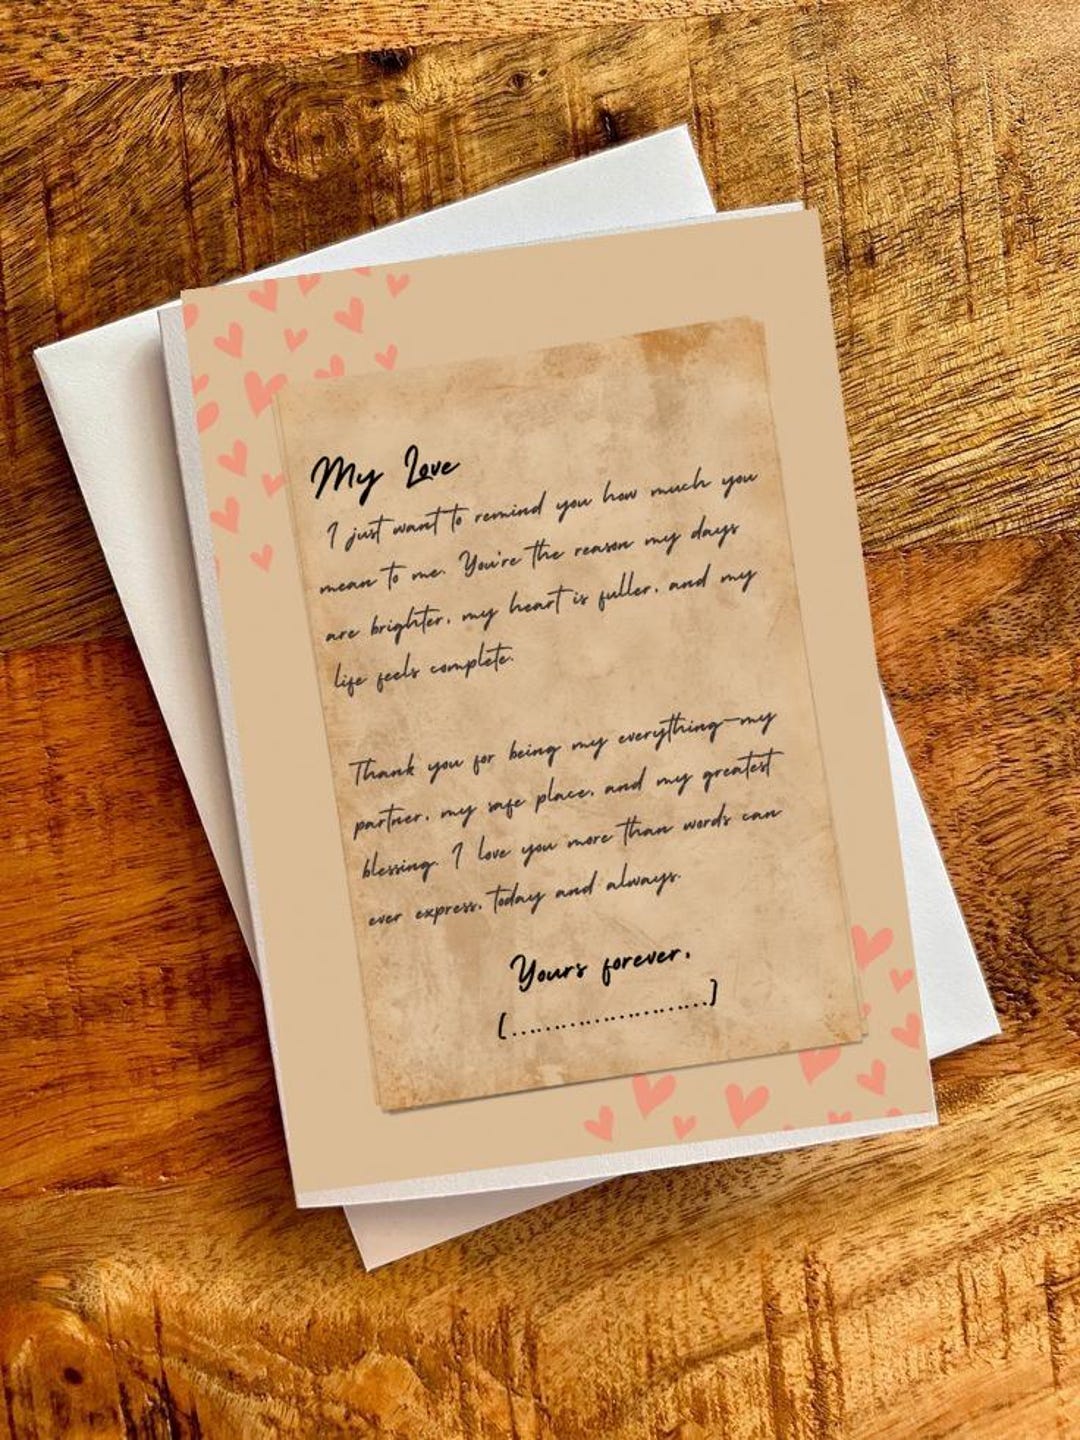 My Love
I just want to remind you how much you
mean to me. You're the reason my days
are brighter, my heart is fuller, and my
life feels complete.
Thank you for being my everything—my
partner, my safe place, and my greatest
blessing. I love you more than words can
ever express, today and always.
Yours forever,
(........................)